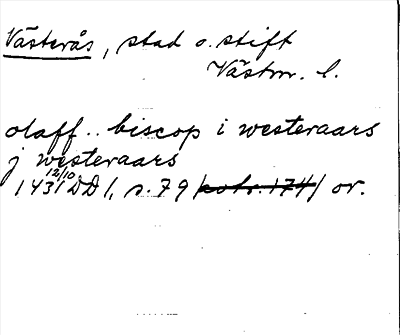 Västerås, stad o. stift
Västm. l.
olaff.. biscop i westeraars
j westeraars
12/10
1431 DD 1, s. 79 /avtr. 174/ or.